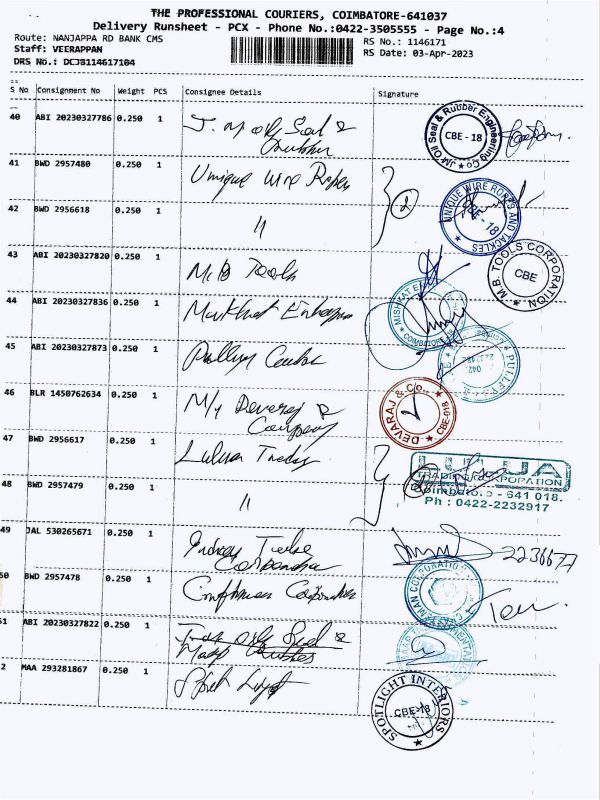 THE PROFESSIONAL COURIERS, COIMBATORE-641037
Delivery Runsheet - PCX - Phone No.:0422-3505555 - Page No.:4
Route: NANJAPPA RD BANK CMS
RS No.: 1146171
Staff: VEERAPPAN
RS Date: 03-Apr-2023
DRS No.: DCJB114617104
S No Consignment No Weight PCS Consignee Details Signature
40 ABI 20230327786 0.250 1 J. M Oil Seal &
JM Oil Seal & Rubber Engineering Co
CBE - 18
41 BWD 2957480 0.250 1 Unique Wire Ropes
2
42 BWD 2956618 0.250 1 "
UNIQUE WIRE ROPES AND TACKLES
CBE - 18
43 ABI 20230327820 0.250 1 M.B Tools
M.B. TOOLS CORPORATION
CBE
44 ABI 20230327836 0.250 1
COIMBATORE
45 ABI 20230327873 0.250 1
PULLEY
46 BLR 1450762634 0.250 1 M/s Devaraj &
Company
DEVARAJ & Co.,
CBE-018
47 BWD 2956617 0.250 1
48 BWD 2957479 0.250 1 "
TRADING CORPORATION
Coimbatore - 641 018.
Ph : 0422-2232917
49 JAL 530265671 0.250 1
Corporation
2236677
50 BWD 2957478 0.250 1 Corporation
51 ABI 20230327822 0.250 1
2 MAA 293281867 0.250 1
SPOTLIGHT INTERIORS
CBE-18